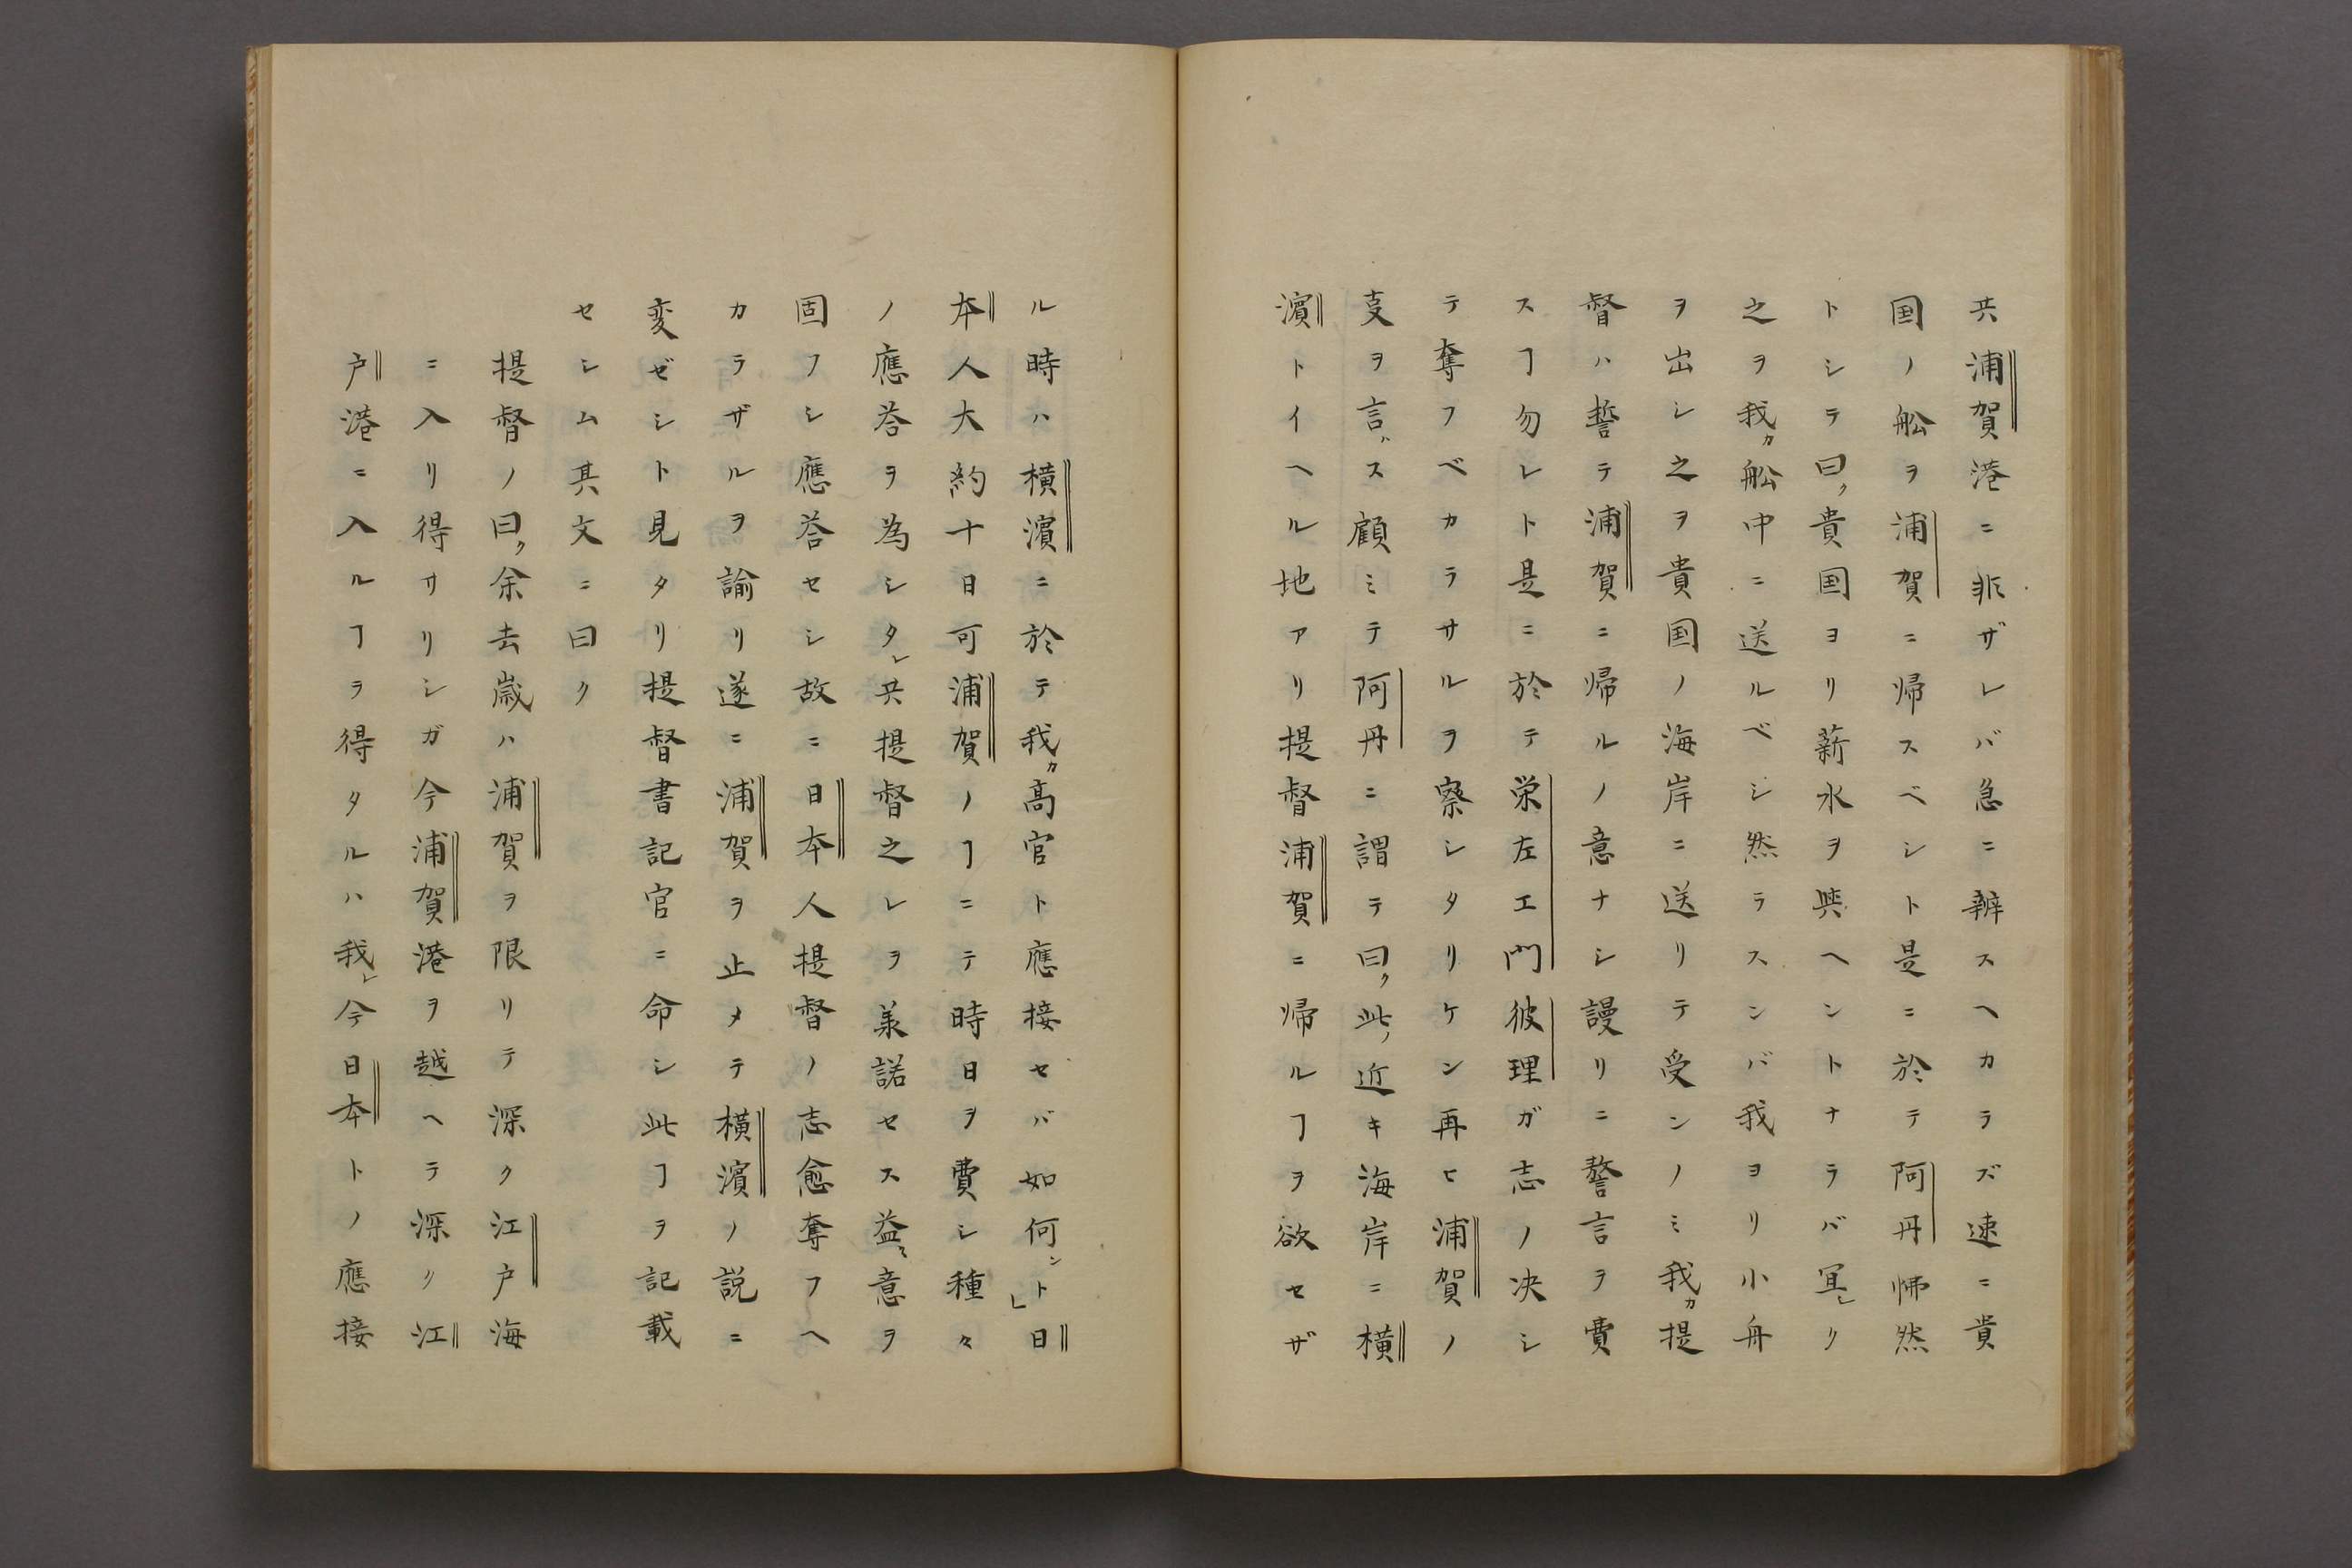 共浦賀港ニ非ザレバ急ニ辨スヘカラズ速ニ貴
国ノ舩ヲ浦賀ニ帰スベシト是ニ於テ阿丹怫然
トシテ曰ク貴国ヨリ薪水ヲ與ヘントナラバ冝シク
之ヲ我カ舩中ニ送ルベシ然ラスンバ我ヨリ小舟
ヲ出シ之ヲ貴国ノ海岸ニ送リテ受ンノミ我カ提
督ハ誓テ浦賀ニ帰ルノ意ナシ謾リニ謷言ヲ費
スヿ勿レト是ニ於テ栄左エ門彼理ガ志ノ决シ
テ奪フベカラサルヲ察シタリケン再ヒ浦賀ノ
㕝ヲ言ハス顧ミテ阿丹ニ謂テ曰ク此ノ近キ海岸ニ横
濵トイヘル地アリ提督浦賀ニ帰ルヿヲ欲セザ
ル時ハ横濵ニ於テ我カ髙官ト應接セバ如何ント」日
本人大約十日可浦賀ノヿニテ時日ヲ費シ種々
ノ應荅ヲ為シタレ共提督之レヲ兼諾セス益々意ヲ
固フシ應荅セシ故ニ日本人提督ノ志愈奪フヘ
カラザルヲ諭リ遂ニ浦賀ヲ止メテ横濵ノ説ニ
変ゼシト見タリ提督書記官ニ命シ此ヿヲ記載
セシム其文ニ曰ク
提督ノ曰ク余去歳ハ浦賀ヲ限リテ深ク江戸海
ニ入リ得サリシガ今浦賀港ヲ越ヘテ深ク江
戸港ニ入ルヿヲ得タルハ我レ今日本トノ應接